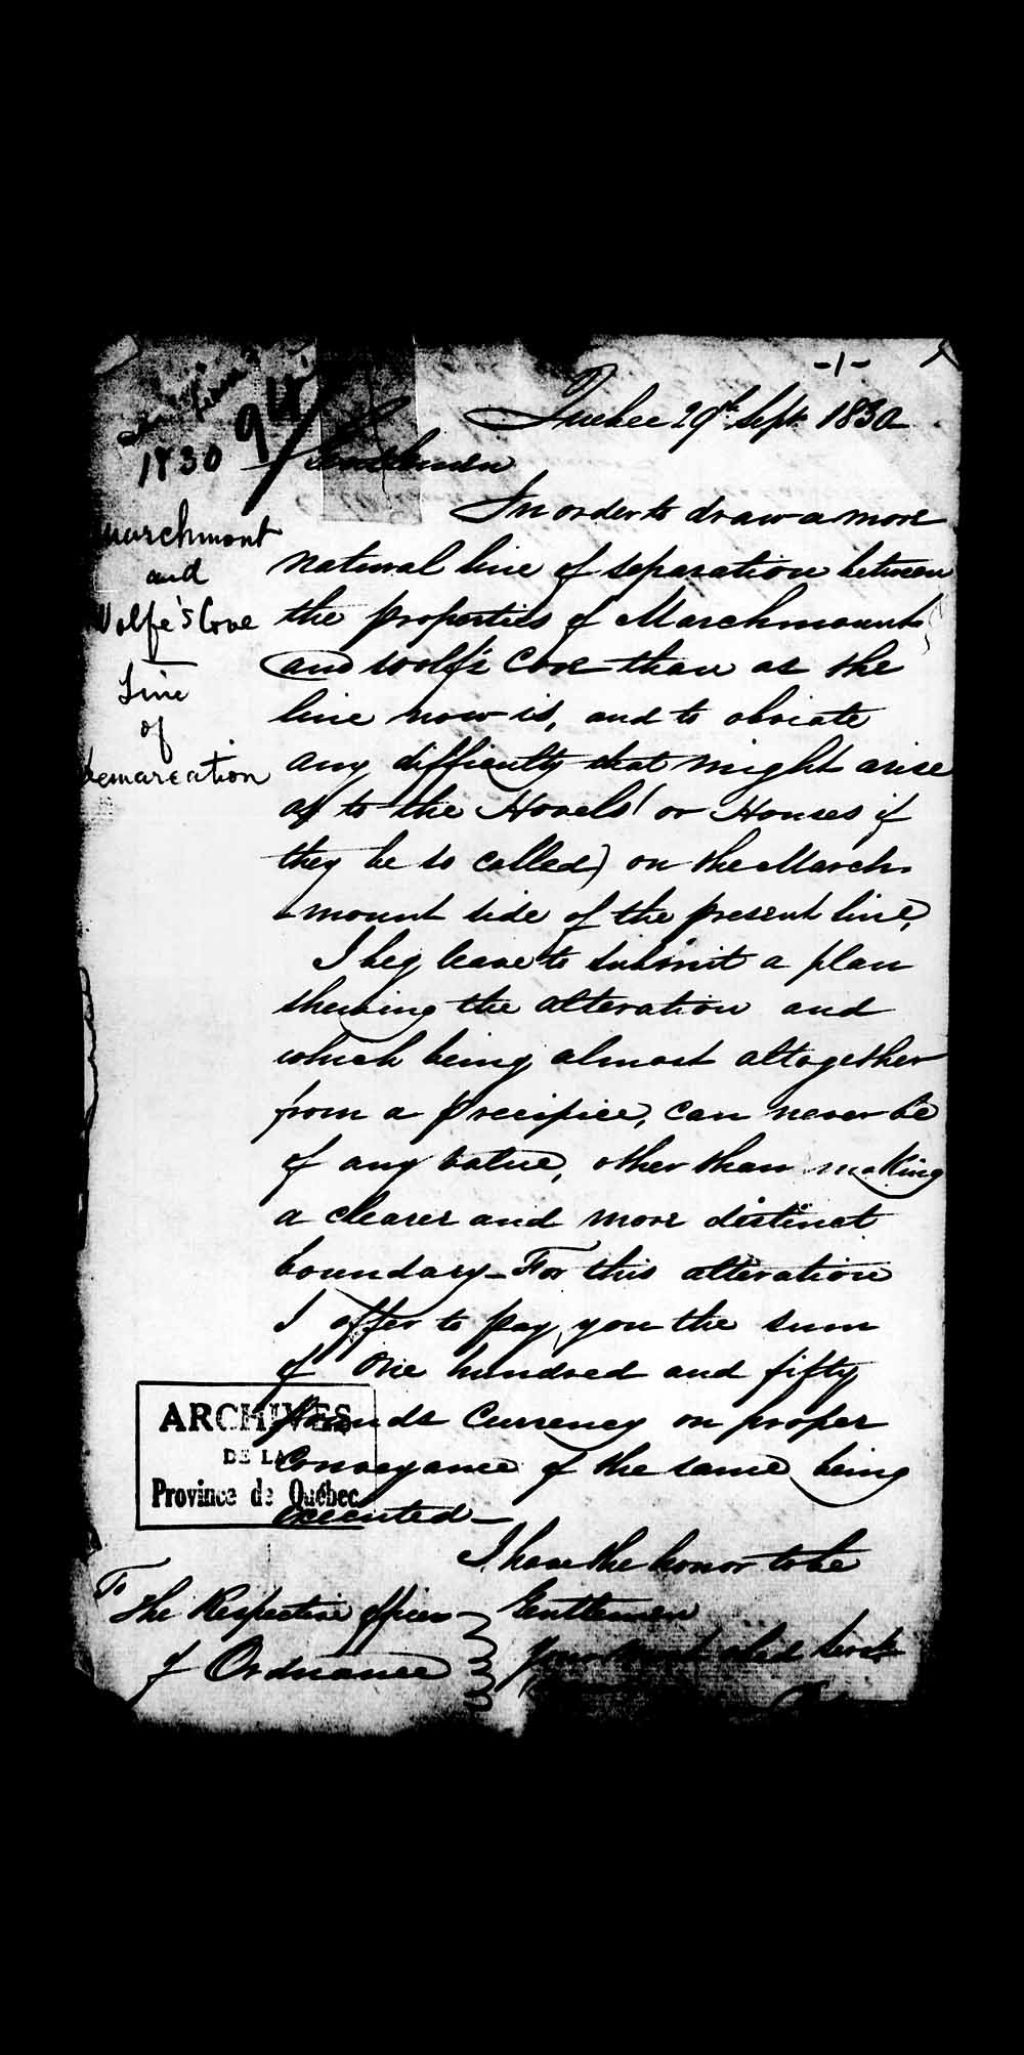 -1-
94
1830
Quebec 29th Sept. 1830
Gentlemen
Marchmont
and
Wolfe's Cove
Line
of
Demarcation
In order to draw a more
natural line of separation between
the properties of Marchmount
and Wolfe's Cove than as the
line now is, and to obviate
any difficulty that might arise
as to the Hovels (or Houses if
they be so called) on the March-
-mount side of the present line,
I beg leave to submit a plan
shewing the alteration and
which being almost altogether
from a precipice, can never be
of any value, other than making
a clearer and more distinct
boundary - For this alteration
I offer to pay you the sum
of One hundred and fifty
Pounds Currency on proper
Conveyance of the same being
executed -
ARCHIVES
DE LA
Province de Québec
I have the honor to be
Gentlemen
Your most obed Servt
To
The Respective officers
of Ordnance